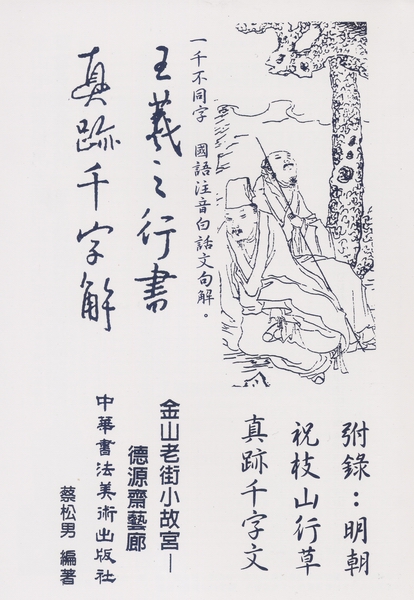 一千不同字　國語注音白話文句解。
王羲之行書
真跡千字解
附錄：明朝
祝枝山行草
真跡千字文
金山老街小故宮—
德源齋藝廊
中華書法美術出版社
蔡松男 編著